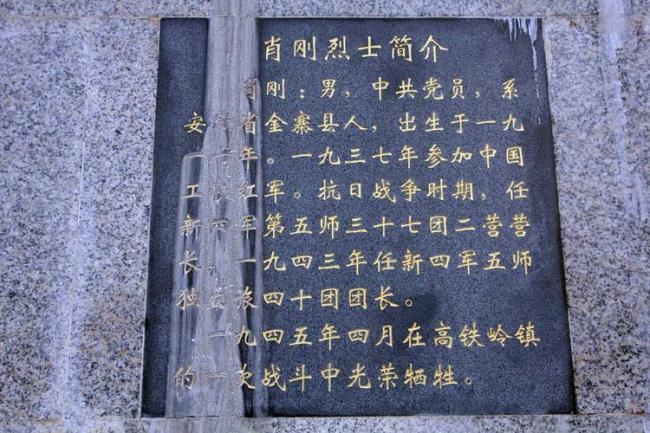 肖刚烈士简介
肖刚：男，中共党员，系
安徽省金寨县人，出生于一九
一年。一九三七年参加中国
工农红军。抗日战争时期，任
新四军第五师三十七团二营营
长，一九四三年任新四军五师
独立旅四十团团长。
一九四五年四月在高铁岭镇
的一次战斗中光荣牺牲。